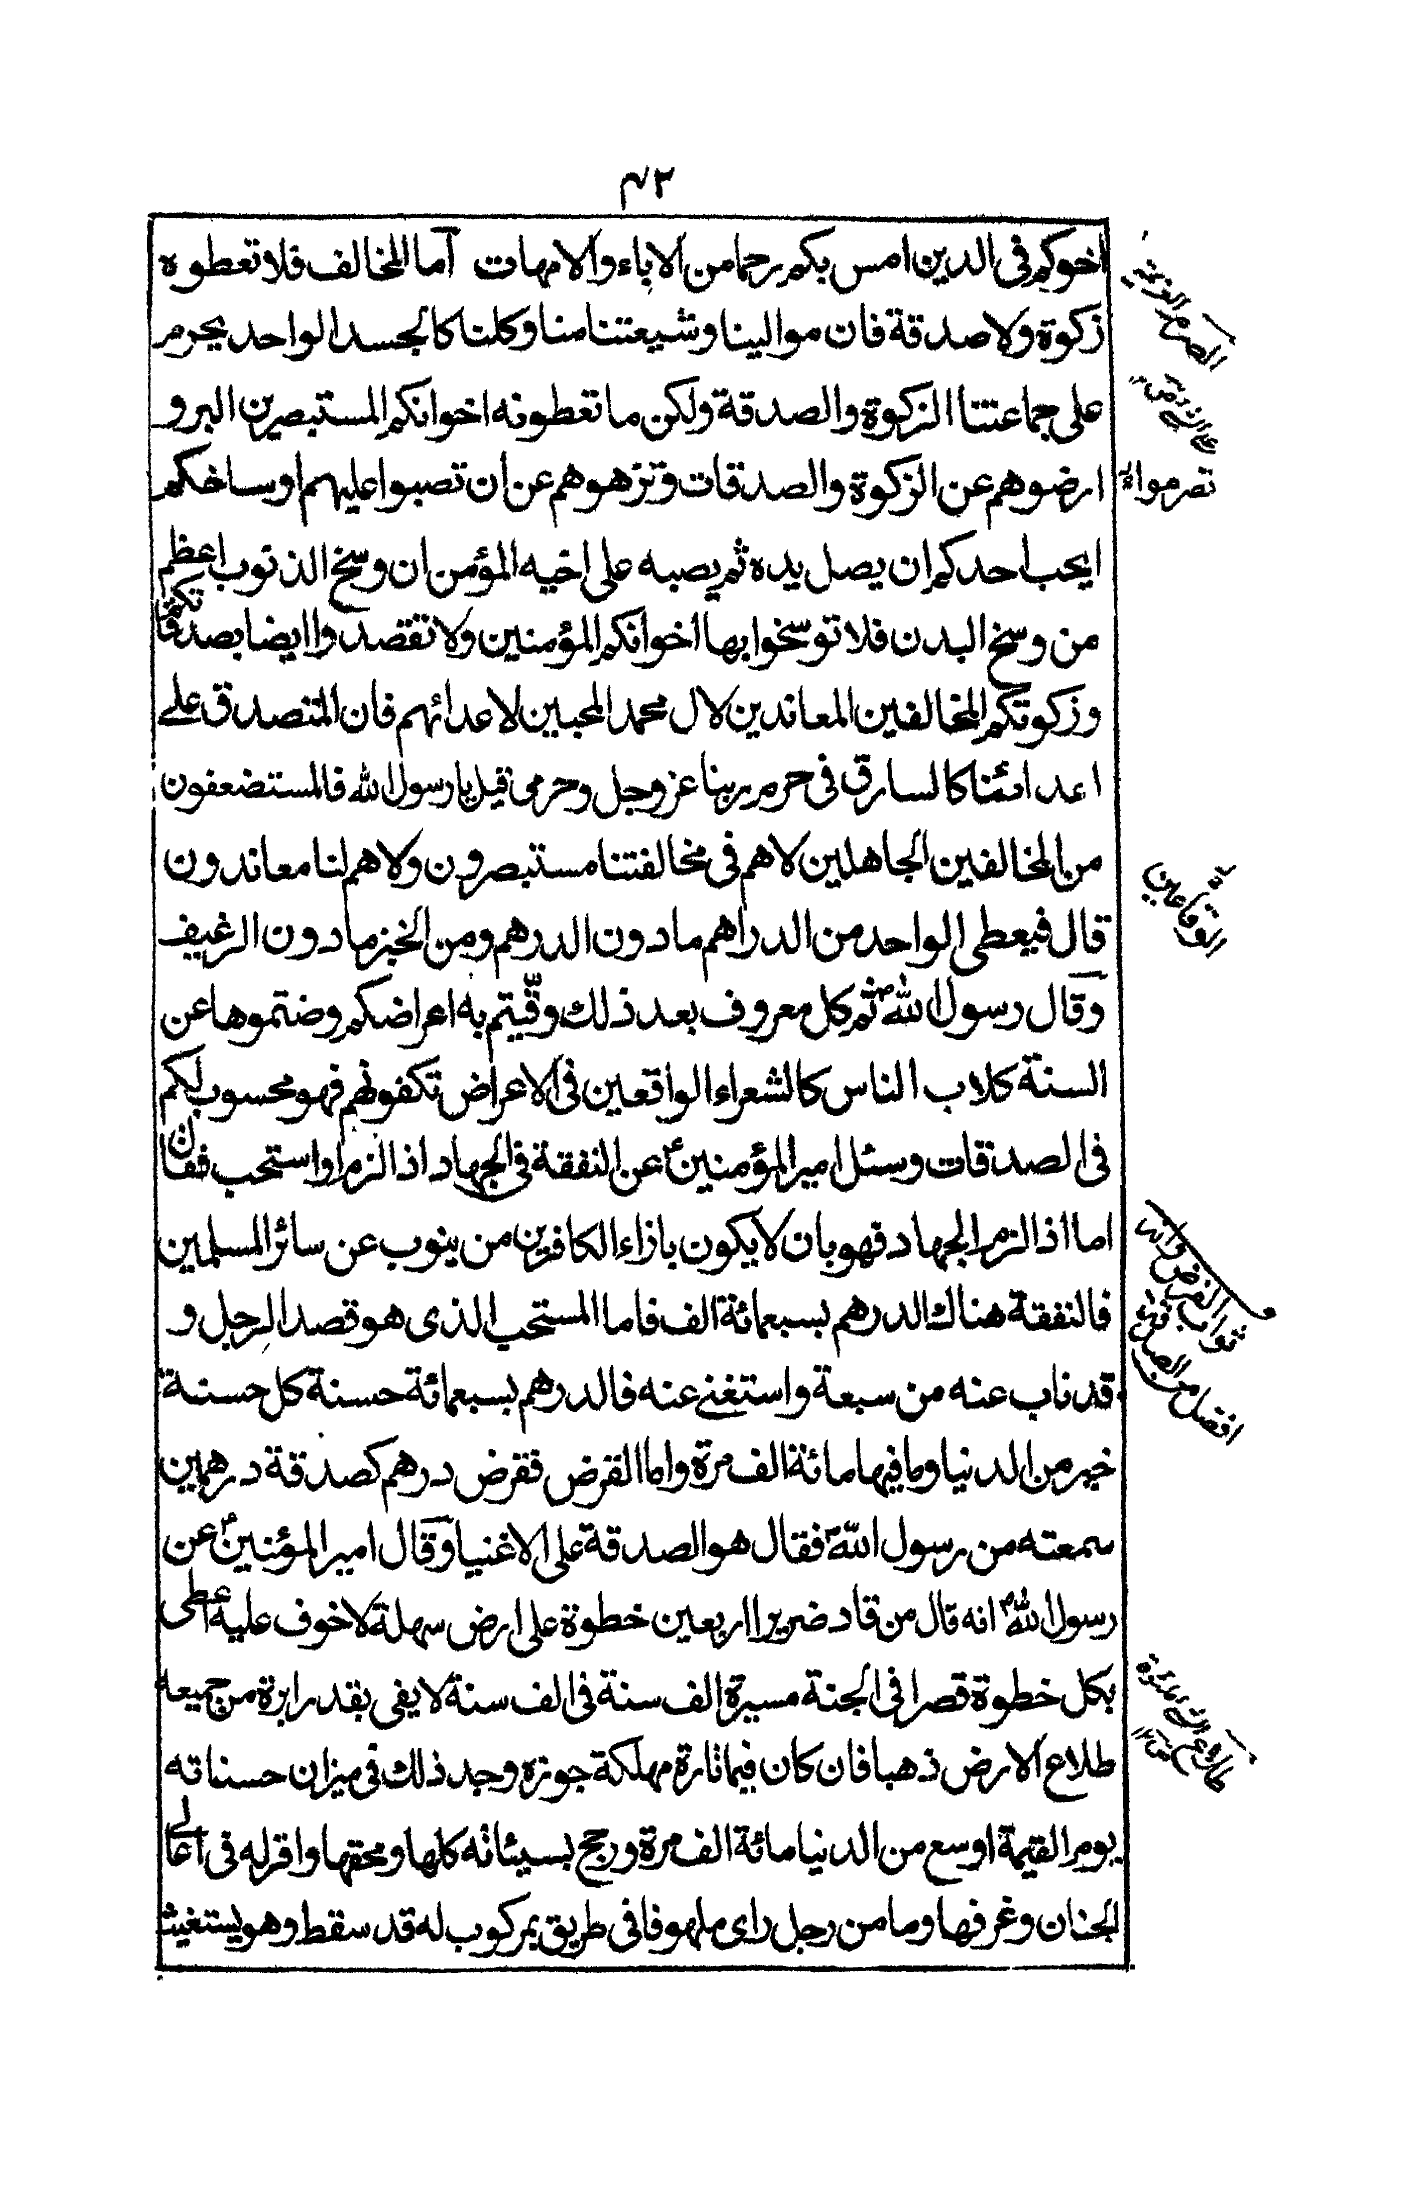 ٤٢
اخوكم فى الدين امس بكم رحما من الاباء والامهات آما المخالف فلا تعطوه
زكوة ولا صدقة فان موالينا وشيعتنا منا وكلنا كالجسد الواحد يحرم
على جماعتنا الزكوة والصدقة ولكن ما تعطونه اخوانكم المستبصرين البر و
ارضوهم عن الزكوة والصدقات ونزهوهم عن ان تصبوا عليهم اوساخكم
ايحب احدكم ان يصل يده ثم يصبه على اخيه المؤمن ان وسخ الذنوب اعظم
من وسخ البدن فلا توسخوا بها اخوانكم المؤمنين ولا تقصدوا ايضا بصدقاتكم
وزكوتكم المخالفين المعاندين لال محمد المحبين لاعدائهم فان المتصدق على
اعدائنا كالسارق فى حرم ربنا عز وجل وحرمى قيل يا رسول الله فالمستضعفون
من المخالفين الجاهلين لا هم فى مخالفتنا مستبصرون ولا هم لنا معاندون
قال فيعطى الواحد من الدراهم ما دون الدرهم ومن الخبز ما دون الرغيف
وقال رسول الله ص ثم كل معروف بعد ذلك وقيتم به اعراضكم وضتموها عن
السنة كلاب الناس كالشعراء الواقعين فى الاعراض تكفونهم فهو محسوب لكم
فى الصدقات وسئل امير المؤمنين ع عن النفقة فى الجهاد اذا لزم او استحب فقال
اما اذا لزم الجهاد فهو بان لا يكون بازاء الكافرين من ينوب عن سائر المسلمين
فالنفقة هناك الدرهم بسبعمائة الف فاما المستحب الذى هو قصد الرجل و
قد ناب عنه من سبعة واستغنى عنه فالدرهم بسبعمائة حسنة كل حسنة
خير من الدنيا وما فيها مائة الف مرة واما القرض فقرض درهم كصدقة درهمين
سمعته من رسول الله ص فقال هو الصدقة على الاغنيا وقال امير المؤمنين ع عن
رسول الله ص انه قال من قاد ضريرا اربعين خطوة على ارض سهلة لا خوف عليه اعطى
بكل خطوة قصرا فى الجنة مسيرة الف سنة فى الف سنة لا يفى بقدر ابرة من جميعه
طلاع الارض ذهبا فان كان فيما ثارة مهلكة جوزه وجد ذلك فى ميزان حسناته
يوم القيمة اوسع من الدنيا مائة الف مرة ورجح بسيئاته كلها ومحقها واقر له فى اعالى
الجنان وغرفها وما من رجل راى ملهوفا فى طريق بمركوب له قد سقط وهو يستغيث
ثواب القرض وانه
افضل من الصدقة